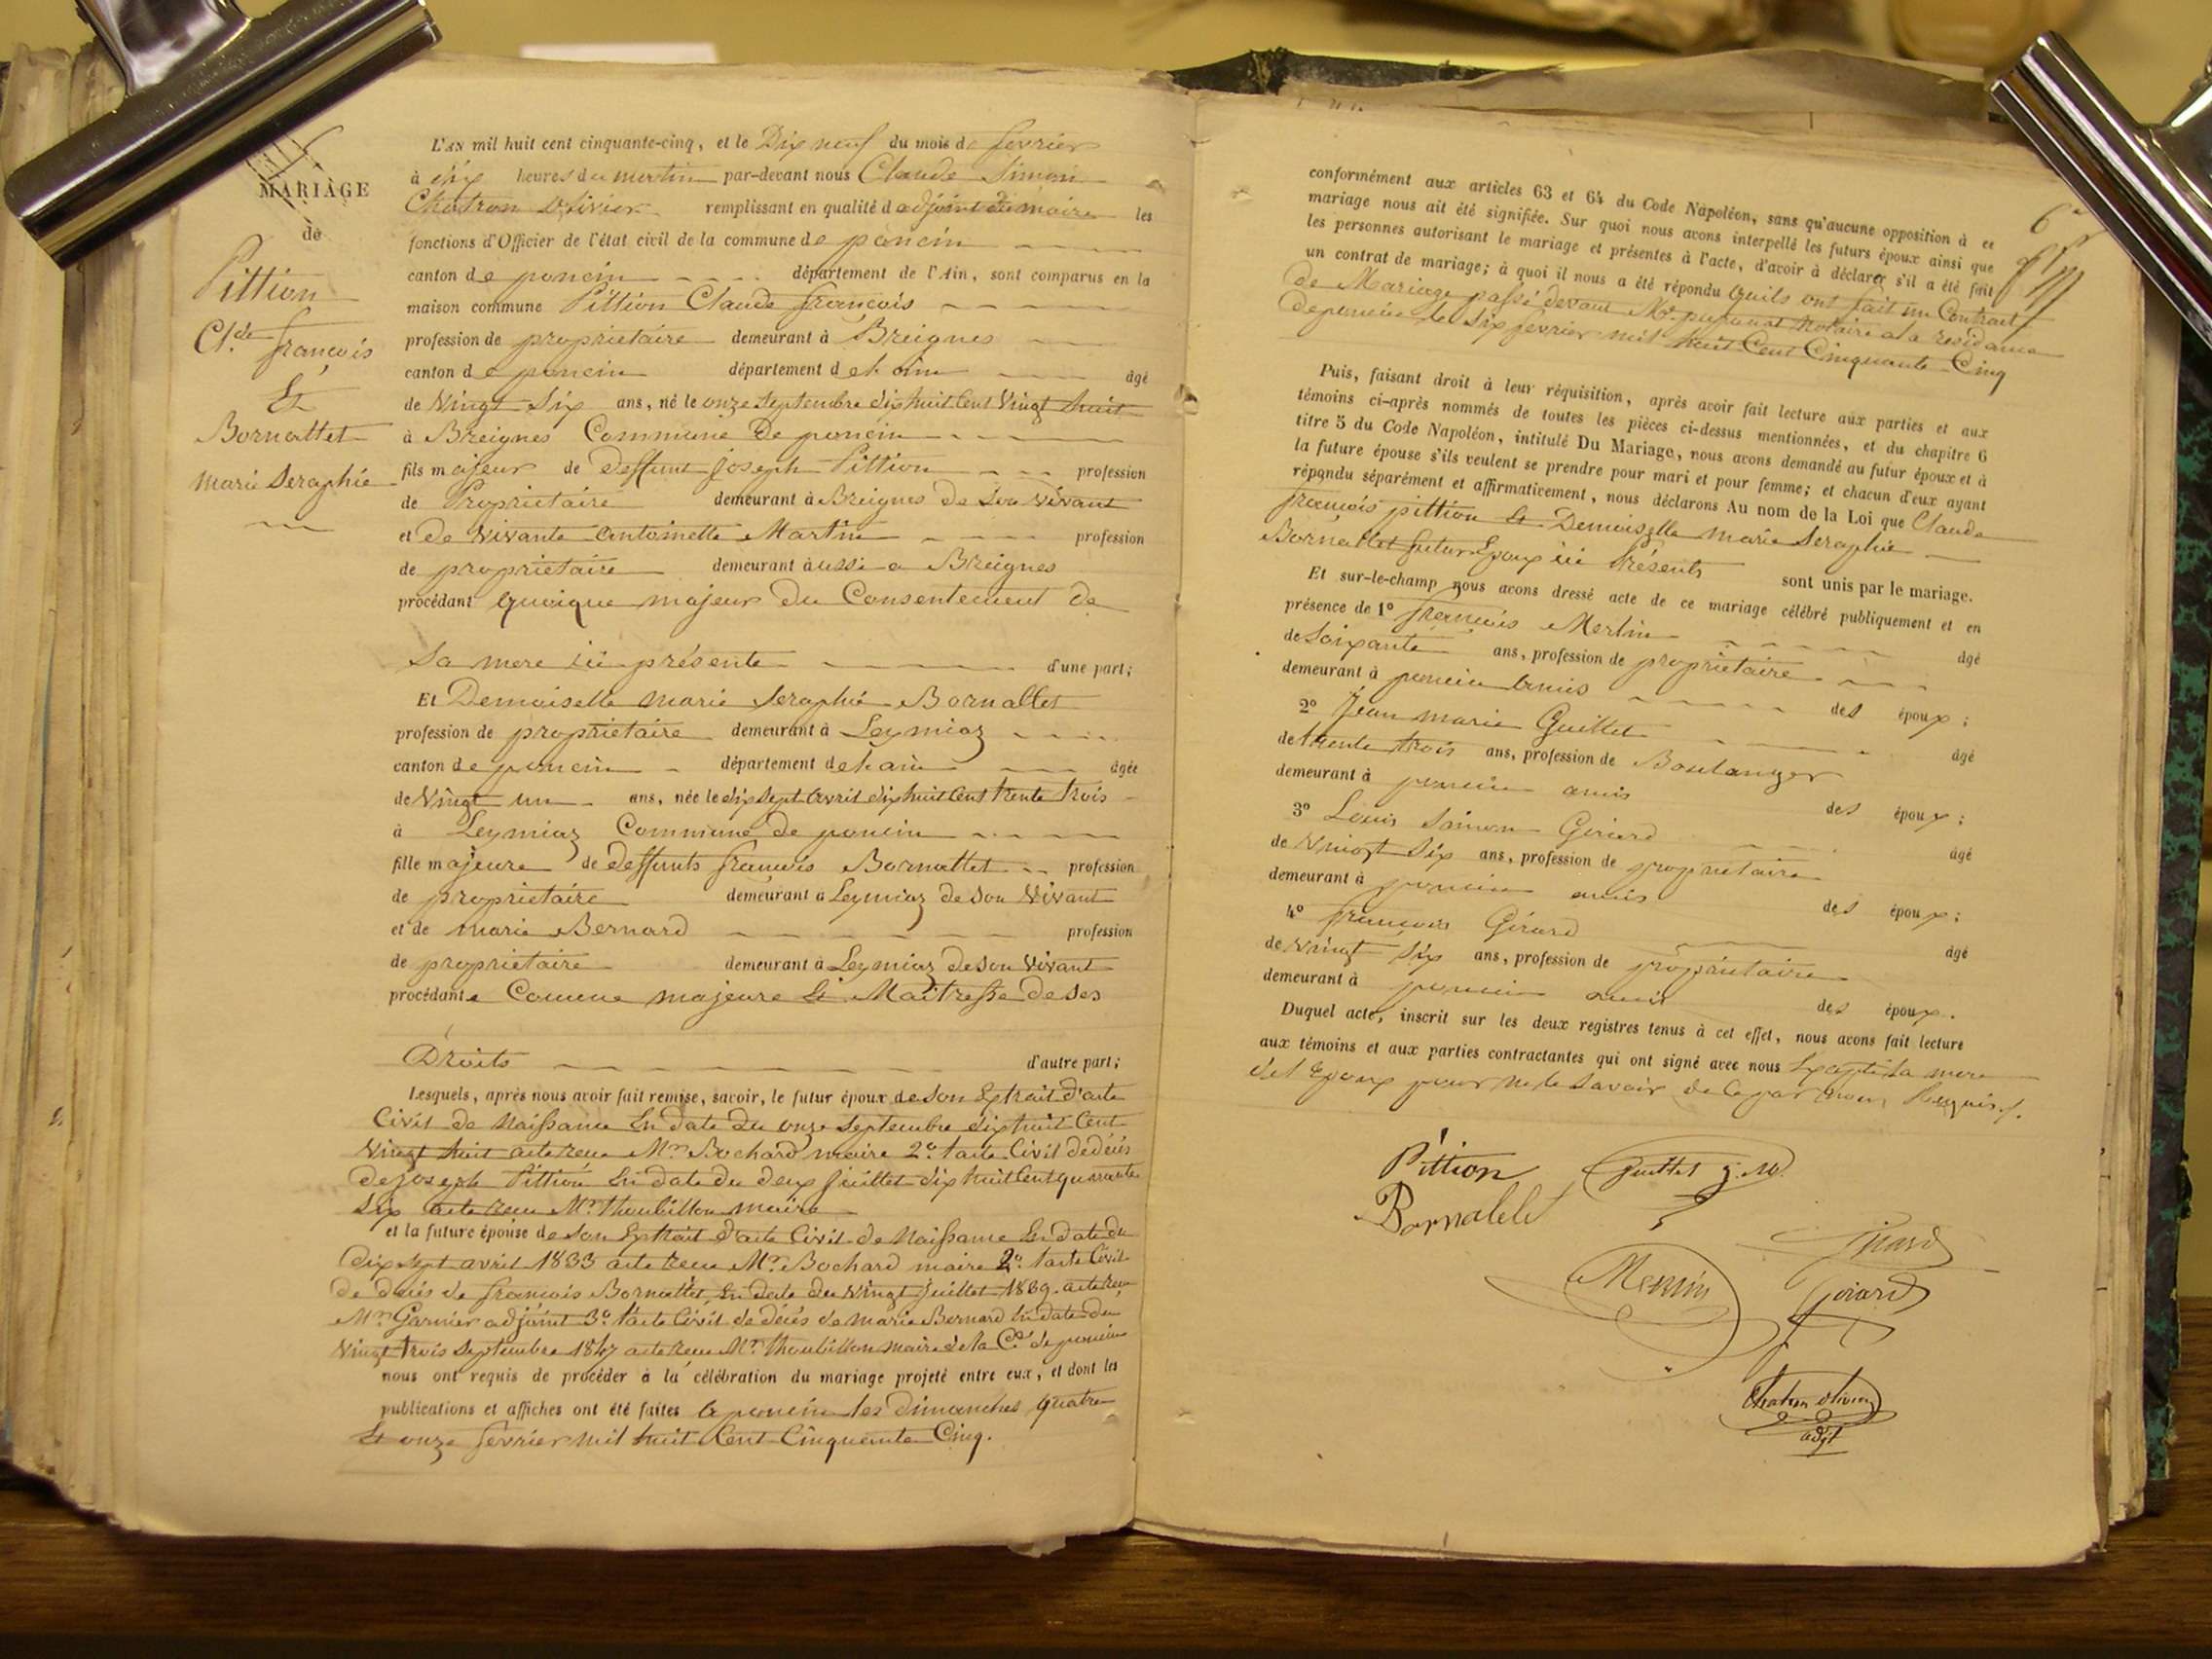 MARIAGE
de
Pittion
Cl.de françois
Et
Bornallet
marie Seraphie
L'AN mil huit cent cinquante-cinq, et le Dix neuf du mois de fevrier
à dix heures du matin par-devant nous Claude Simon
Chatron Olivier remplissant en qualité d adjoint du maire les
fonctions d'Officier de l'état civil de la commune de poncin
canton de poncin département de l'Ain, sont comparus en la
maison commune Pittion Claude françois
profession de proprietaire demeurant à Breignes
canton de poncin département de l'ain âgé
de Vingt Six ans, né le onze Septembre dix huit Cent Vingt huit
à Breignes Commune De poncin
fils majeur de deffunt joseph Pittion profession
de Proprietaire demeurant à Breignes de Son vivant
et de vivante antoinette Martin profession
de proprietaire demeurant à ussi a Breignes
procédant quoique majeur du Consentement de
Sa mere ici présente d'une part;
Et Demoiselle marie Seraphie Bornallet
profession de proprietaire demeurant à Leymiaz
canton de poncin département de l'ain âgée
de Vingt un ans, née le dix Sept avril dix huit Cent trente trois
à Leymiaz Commune de poncin
fille majeure de deffunts françois Bornallet profession
de proprietaire demeurant a Leymiaz de Son vivant
et de marie Bernard profession
de proprietaire demeurant à Leymiaz de Son vivant
procédante Comme majeure Et Maitresse de Ses
Droits d'autre part;
Lesquels, après nous avoir fait remise, savoir, le futur époux de son Extrait d'acte
Civil de Naissance En date du onze Septembre dix huit Cent
Vingt huit acte recu Mr Bochard maire 2.º l'acte Civil de décés
de joseph Pittion En date du deux juillet dix huit Cent quarante
Six acte recu Mr Thoubillon maire
et la future épouse de Son Extrait d'acte Civil de Naissance En date du
dix Sept avril 1833 acte recu Mr Bochard maire 2.º l'acte Civil
de décés de francois Bornallet, En date du Vingt juillet 1839 acte recu
Mr Garnier adjoint 3.º l'acte Civil de décés de marie Bernard En date du
Vingt trois Septembre 1847 acte recu Mr Thoubillon maire de la Cne de poncin
nous ont requis de procéder à la célébration du mariage projeté entre eux, et dont les
publications et affiches ont été faites a poncin les dimanches quatre
Et onze fevrier mil huit Cent Cinquante Cinq.
conformément aux articles 63 et 64 du Code Napoléon, sans qu'aucune opposition à ce
mariage nous ait été signifiée. Sur quoi nous avons interpellé les futurs époux ainsi que
les personnes autorisant le mariage et présentes à l'acte, d'avoir à déclarer s'il a été fait
un contrat de mariage; à quoi il nous a été répondu quils ont fait un Contrat
de Mariage passé devant Mr notaire a la residance
de poncin le Six fevrier mil huit Cent Cinquante Cinq
Puis, faisant droit à leur réquisition, après avoir fait lecture aux parties et aux
témoins ci-après nommés de toutes les pièces ci-dessus mentionnées, et du chapitre 6
titre 5 du Code Napoléon, intitulé Du Mariage, nous avons demandé au futur époux et à
la future épouse s'ils veulent se prendre pour mari et pour femme; et chacun d'eux ayant
répondu séparément et affirmativement, nous déclarons Au nom de la Loi que Claude
françois pittion Et Demoiselle marie Seraphie
Bornallet futurs Epoux ici Présents sont unis par le mariage.
Et sur-le-champ nous avons dressé acte de ce mariage célébré publiquement et en
présence de 1º francois Merlin âgé
de Soixante ans, profession de proprietaire
demeurant à poncin amis des époux;
2º Jean marie Guillet âgé
de trente trois ans, profession de Boulanger
demeurant à poncin amis des époux;
3º Louis Simon Girard âgé
de Vingt Six ans, profession de proprietaire
demeurant à poncin amis des époux;
4º francois Girard âgé
de Vingt Six ans, profession de proprietaire
demeurant à poncin amis des époux.
Duquel acte, inscrit sur les deux registres tenus à cet effet, nous avons fait lecture
aux témoins et aux parties contractantes qui ont signé avec nous Excepté la mere
de l Epoux pour ne le Savoir de ce par nous Requis.
Pittion Guillet j. m.
Bornallet
Girard
Merlin
Girard
Chatron Olivier
adjt